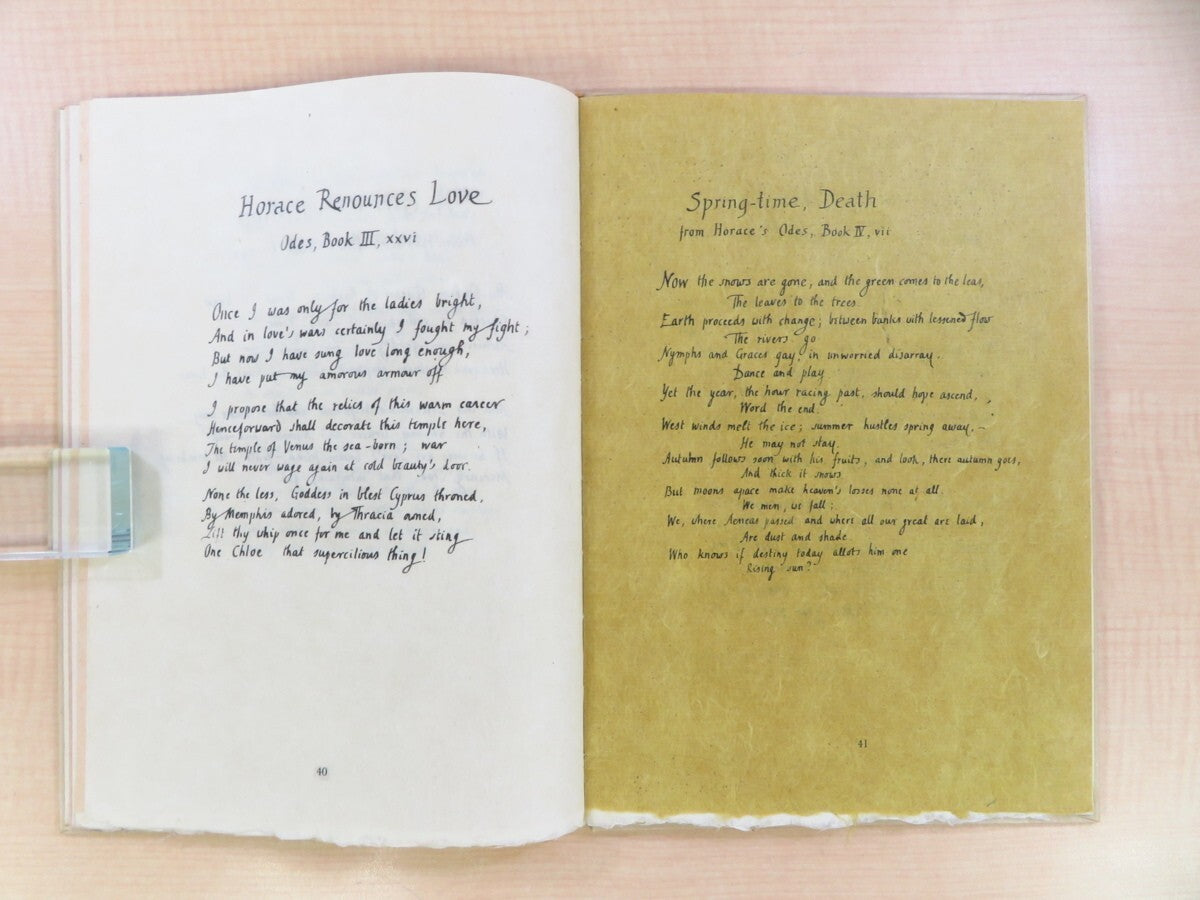 Horace Renounces Love
Odes, Book III, xxvi
Once I was only for the ladies bright,
And in love's wars certainly I fought my fight;
But now I have sung love long enough,
I have put my amorous armour off
I propose that the relics of this warm career
Henceforward shall decorate this temple here,
The temple of Venus the sea-born; war
I will never wage again at cold beauty's door.
None the less, Goddess in blest Cyprus throned,
By Memphis adored, by Thracia owned,
Lift thy whip once for me and let it sting
One Chloe that supercilious thing!
40
Spring-time, Death
from Horace's Odes, Book IV, vii
Now the snows are gone, and the green comes to the leas,
The leaves to the trees.
Earth proceeds with change; between banks with lessened flow
The rivers go
Nymphs and Graces gay in unworried disarray.
Dance and play
Yet the year, the hour racing past, should hope ascend,
Word the end.
West winds melt the ice; summer hustles spring away, -
He may not stay.
Autumn follows soon with his fruits, and look, there autumn goes,
And thick it snows
But moons apace make heaven's losses none at all.
We men, we fall;
We, where Aeneas passed and where all our great are laid,
Are dust and shade.
Who knows if destiny today allots him one
Rising sun?
41